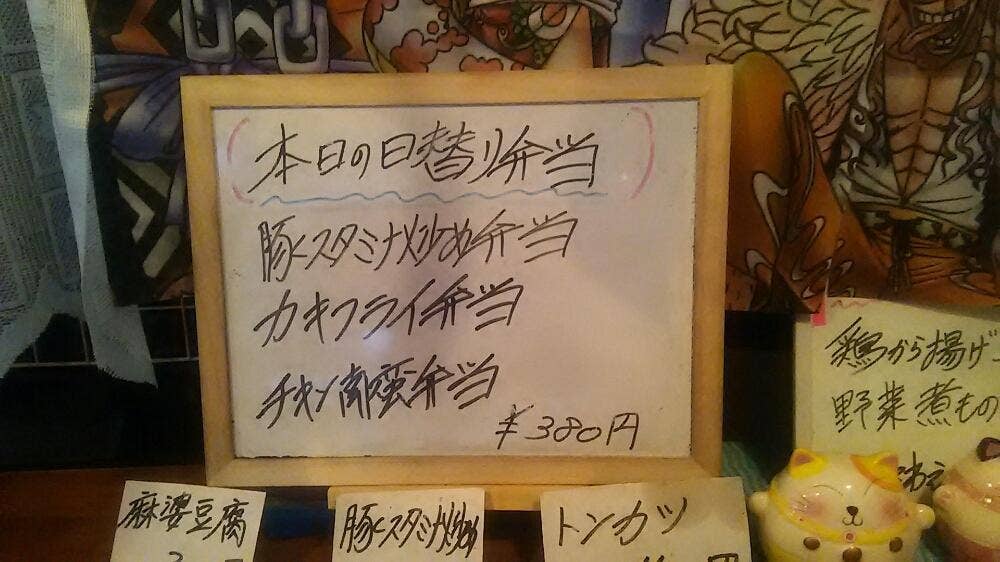 本日の日替り弁当
豚スタミナ炒め弁当
カキフライ弁当
チキン南蛮弁当
¥380円
鶏から揚げ
野菜煮もの
麻婆豆腐
豚スタミナ炒め
トンカツ